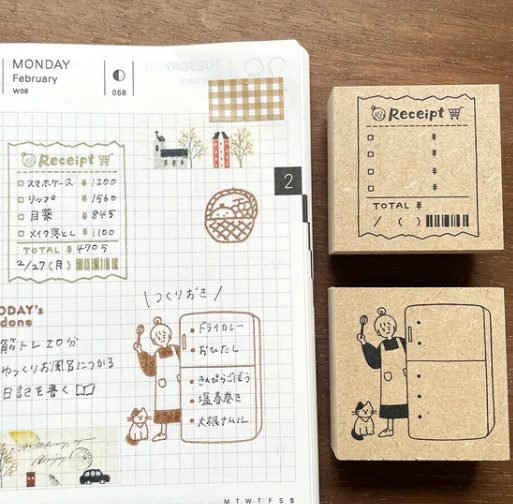 MONDAY
February
W09
058
Receipt
スマホケース ¥1200
リップ ¥1560
目薬 ¥845
メイク落とし ¥1100
TOTAL ¥4705
2/27(月)
2
つくりおき
ドライカレー
おひたし
きんぴらごぼう
塩春巻き
大根ナムル
TODAY's
done
筋トレ20分
ゆっくりお風呂につかる
日記を書く
M T W T F S S
Receipt
¥
¥
¥
¥
TOTAL ¥
/ ( )